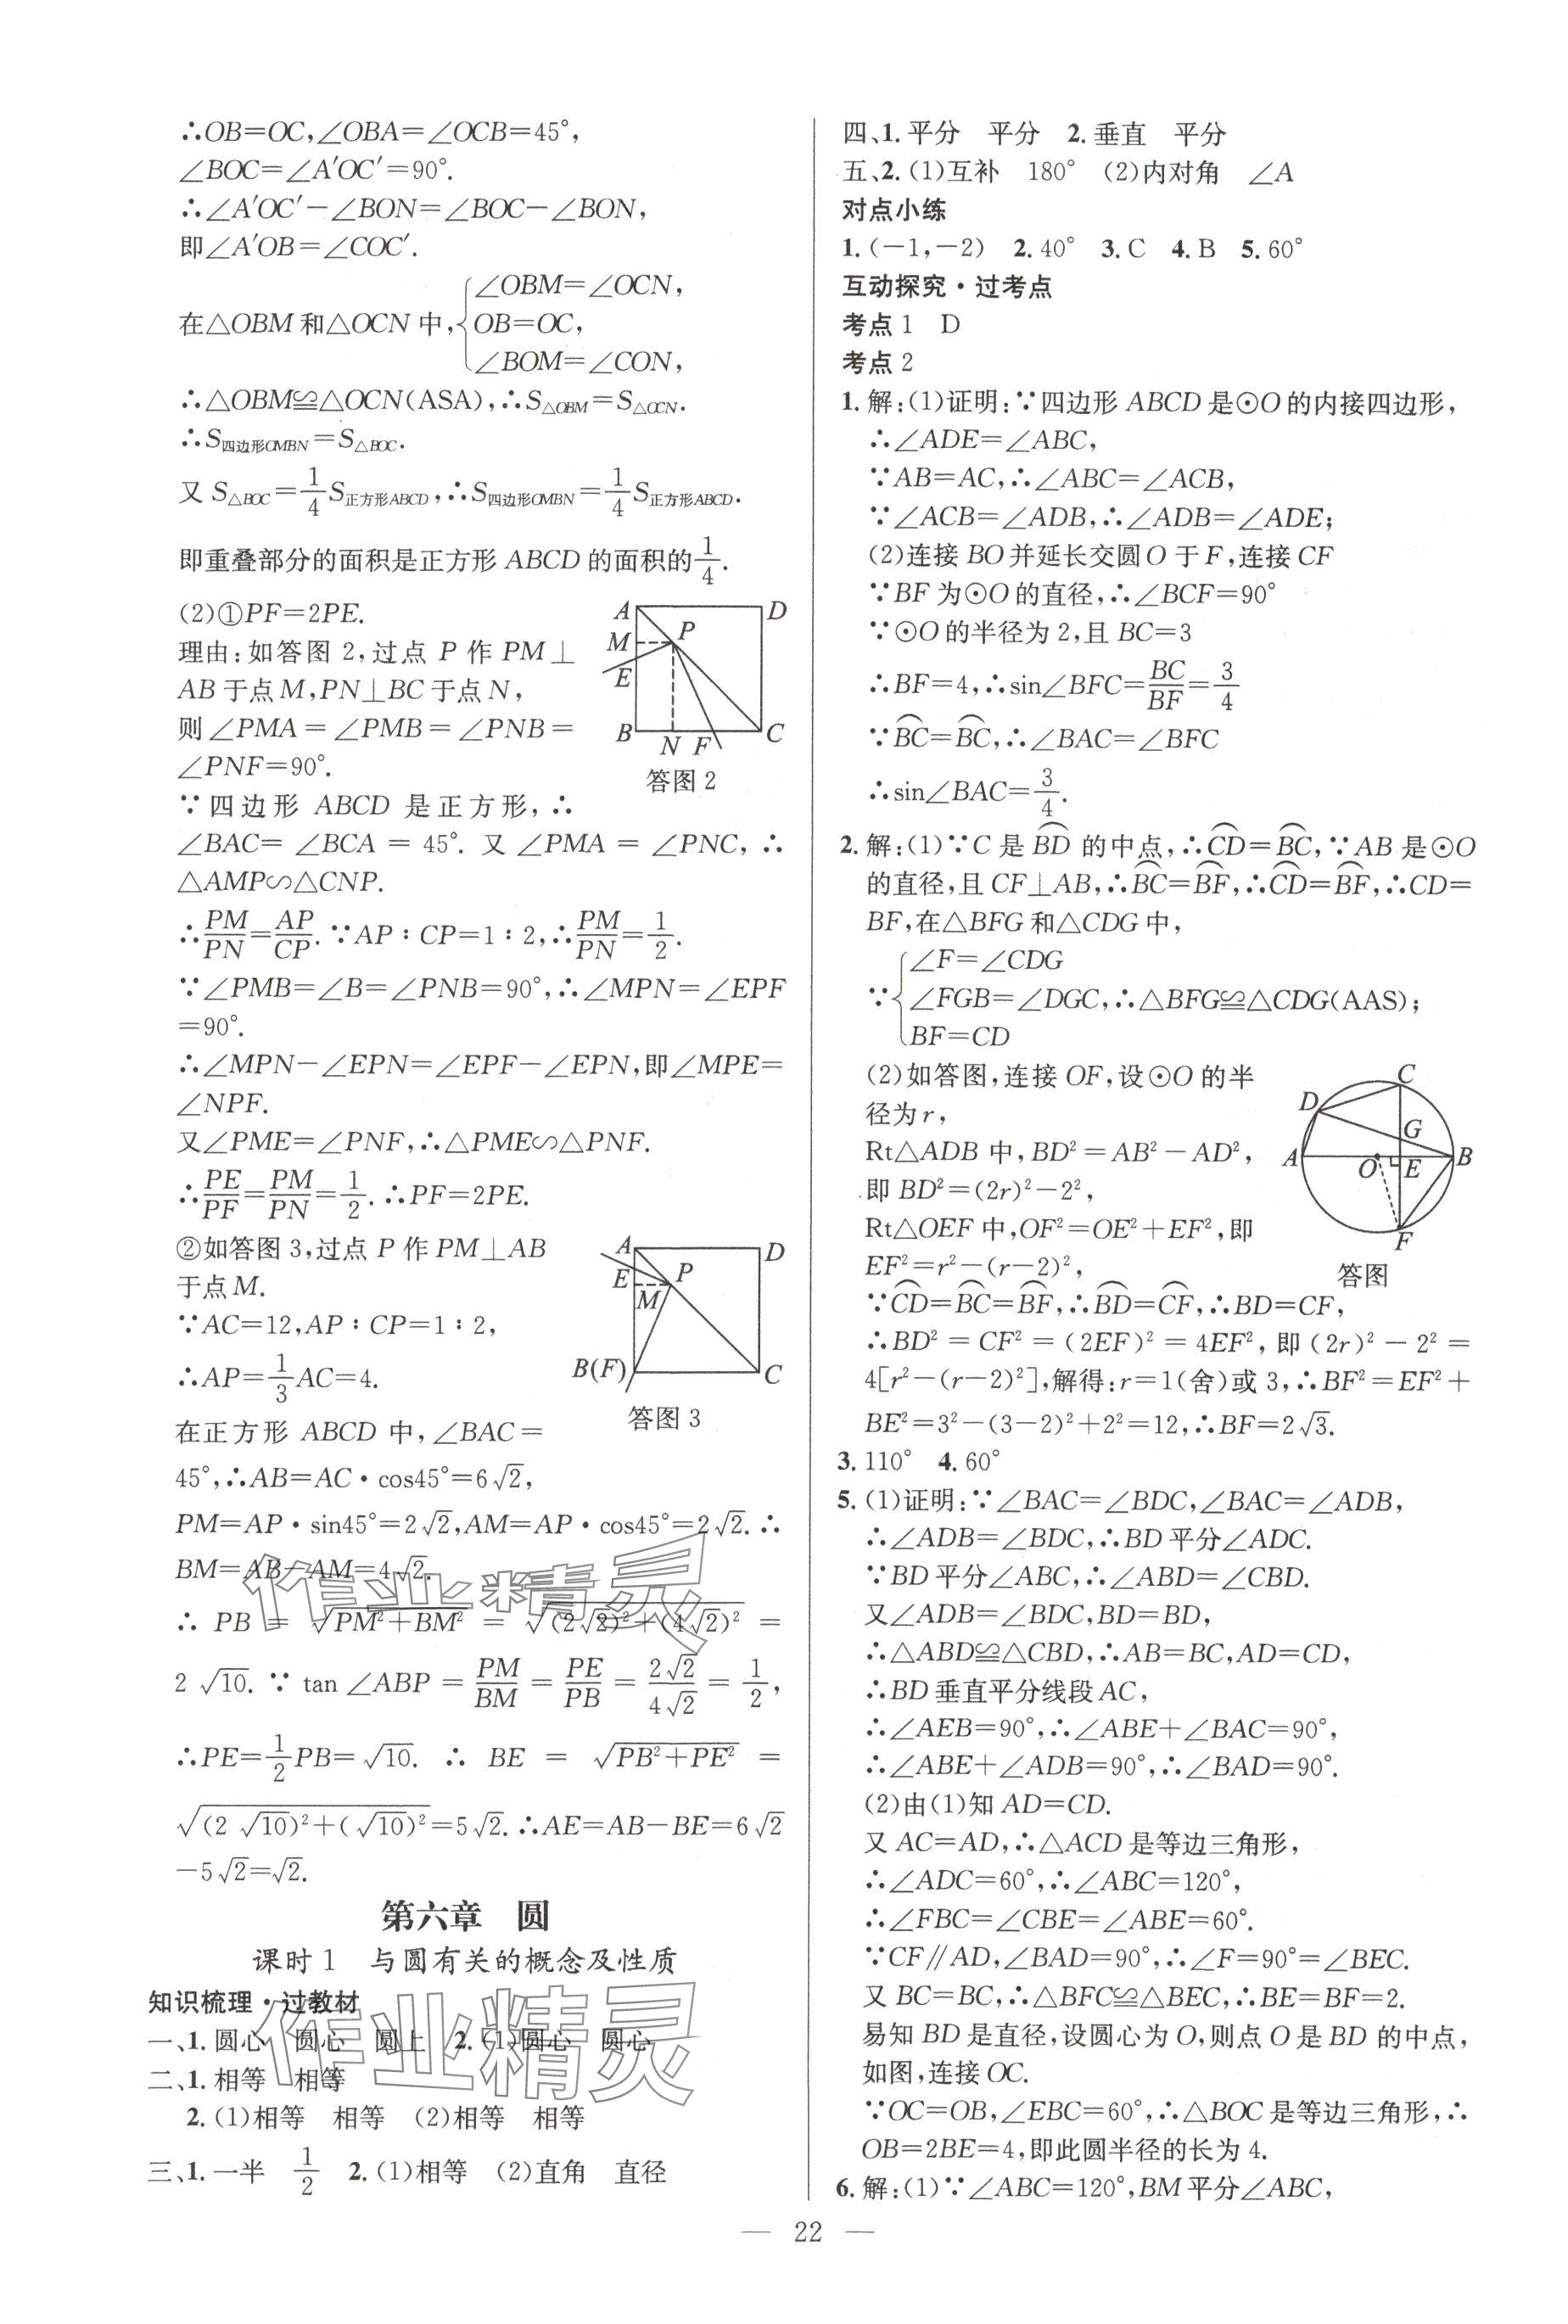 ∴OB=OC,∠OBA=∠OCB=45°,
∠BOC=∠A′OC′=90°.
∴∠A′OC′-∠BON=∠BOC-∠BON,
即∠A′OB=∠COC′.
在△OBM和△OCN中,{∠OBM=∠OCN,
OB=OC,
∠BOM=∠CON,
∴△OBM≌△OCN(ASA),∴S△OBM=S△OCN.
∴S四边形OMBN=S△BOC.
又S△BOC=1/4S正方形ABCD,∴S四边形OMBN=1/4S正方形ABCD.
即重叠部分的面积是正方形ABCD的面积的1/4.
(2)①PF=2PE.
理由:如答图2,过点P作PM⊥
AB于点M,PN⊥BC于点N,
则∠PMA=∠PMB=∠PNB=
∠PNF=90°.
A D M P E B N F C
答图2
∵四边形ABCD是正方形,∴
∠BAC=∠BCA=45°.又∠PMA=∠PNC,∴
△AMP∽△CNP.
∴PM/PN=AP/CP.∵AP∶CP=1∶2,∴PM/PN=1/2.
∵∠PMB=∠B=∠PNB=90°,∴∠MPN=∠EPF
=90°.
∴∠MPN-∠EPN=∠EPF-∠EPN,即∠MPE=
∠NPF.
又∠PME=∠PNF,∴△PME∽△PNF.
∴PE/PF=PM/PN=1/2.∴PF=2PE.
②如答图3,过点P作PM⊥AB
于点M.
∵AC=12,AP∶CP=1∶2,
∴AP=1/3AC=4.
A D E P M B(F) C
答图3
在正方形ABCD中,∠BAC=
45°,∴AB=AC·cos45°=6√2,
PM=AP·sin45°=2√2,AM=AP·cos45°=2√2.∴
BM=AB-AM=4√2.
∴PB=√(PM²+BM²)=√((2√2)²+(4√2)²)=
2√10.∵tan∠ABP=PM/BM=PE/PB=2√2/4√2=1/2,
∴PE=1/2PB=√10.∴BE=√(PB²+PE²)=
√((2√10)²+(√10)²)=5√2.∴AE=AB-BE=6√2
-5√2=√2.
第六章 圆
课时1 与圆有关的概念及性质
知识梳理·过教材
一、1.圆心 圆心 圆上 2.(1)圆心 圆心
二、1.相等 相等
2.(1)相等 相等 (2)相等 相等
三、1.一半 1/2 2.(1)相等 (2)直角 直径
四、1.平分 平分 2.垂直 平分
五、2.(1)互补 180° (2)内对角 ∠A
对点小练
1.(-1,-2) 2.40° 3.C 4.B 5.60°
互动探究·过考点
考点1 D
考点2
1.解:(1)证明:∵四边形ABCD是⊙O的内接四边形,
∴∠ADE=∠ABC,
∵AB=AC,∴∠ABC=∠ACB,
∵∠ACB=∠ADB,∴∠ADB=∠ADE;
(2)连接BO并延长交圆O于F,连接CF
∵BF为⊙O的直径,∴∠BCF=90°
∵⊙O的半径为2,且BC=3
∴BF=4,∴sin∠BFC=BC/BF=3/4
∵⌒BC=⌒BC,∴∠BAC=∠BFC
∴sin∠BAC=3/4.
2.解:(1)∵C是⌒BD的中点,∴⌒CD=⌒BC,∵AB是⊙O
的直径,且CF⊥AB,∴⌒BC=⌒BF,∴⌒CD=⌒BF,∴CD=
BF,在△BFG和△CDG中,
∵{∠F=∠CDG
∠FGB=∠DGC,∴△BFG≌△CDG(AAS);
BF=CD
(2)如答图,连接OF,设⊙O的半
径为r,
Rt△ADB中,BD²=AB²-AD²,
即BD²=(2r)²-2²,
Rt△OEF中,OF²=OE²+EF²,即
EF²=r²-(r-2)²,
C D G A O E B F
答图
∵⌒CD=⌒BC=⌒BF,∴⌒BD=⌒CF,∴BD=CF,
∴BD²=CF²=(2EF)²=4EF²,即(2r)²-2²=
4[r²-(r-2)²],解得:r=1(舍)或3,∴BF²=EF²+
BE²=3²-(3-2)²+2²=12,∴BF=2√3.
3.110° 4.60°
5.(1)证明:∵∠BAC=∠BDC,∠BAC=∠ADB,
∴∠ADB=∠BDC,∴BD平分∠ADC.
∵BD平分∠ABC,∴∠ABD=∠CBD.
又∠ADB=∠BDC,BD=BD,
∴△ABD≌△CBD,∴AB=BC,AD=CD,
∴BD垂直平分线段AC,
∴∠AEB=90°,∴∠ABE+∠BAC=90°,
∴∠ABE+∠ADB=90°,∴∠BAD=90°.
(2)由(1)知AD=CD.
又AC=AD,∴△ACD是等边三角形,
∴∠ADC=60°,∴∠ABC=120°,
∴∠FBC=∠CBE=∠ABE=60°.
∵CF∥AD,∠BAD=90°,∴∠F=90°=∠BEC.
又BC=BC,∴△BFC≌△BEC,∴BE=BF=2.
易知BD是直径,设圆心为O,则点O是BD的中点,
如图,连接OC.
∵OC=OB,∠EBC=60°,∴△BOC是等边三角形,∴
OB=2BE=4,即此圆半径的长为4.
6.解:(1)∵∠ABC=120°,BM平分∠ABC,
— 22 —
作业精灵
作业精灵